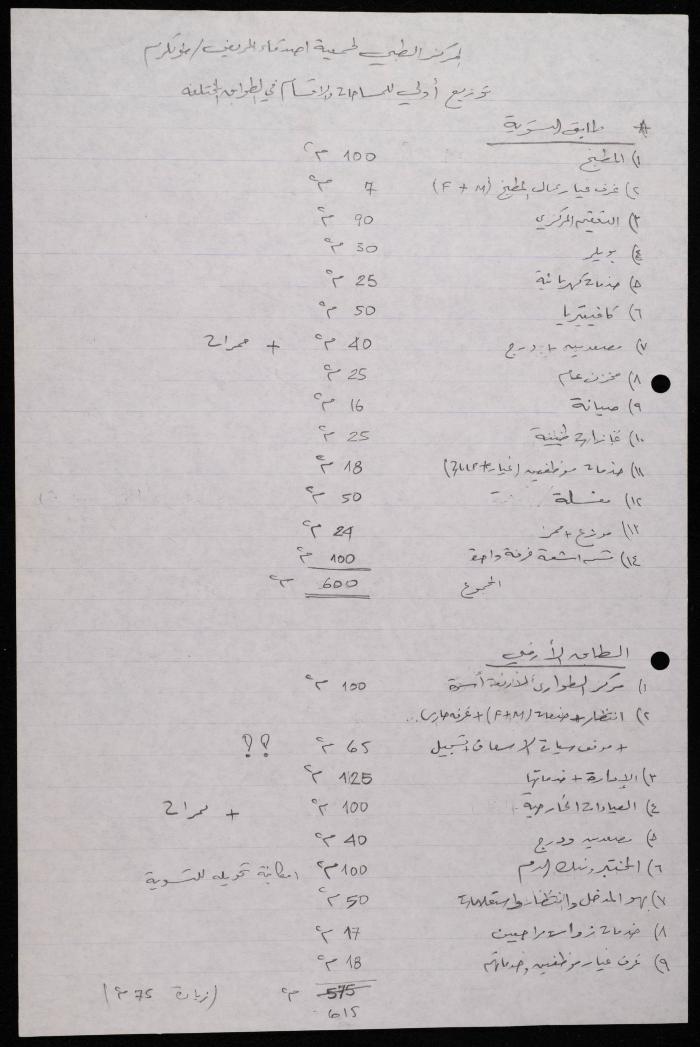 المركز الطبي لجمعية اصدقاء المريض / طولكرم
توزيع أولي للمساحات والاقسام في الطوابق المختلفة
* طابق التسوية
١) المطبخ 100 م٢
٢) غرف غيار عمال المطبخ (F + M) 7 م٢
٣) التعقيم المركزي 90 م٢
٤) بويلر 30 م٢
٥) خدمات كهربائية 25 م٢
٦) كافيتيريا 50 م٢
٧) مصعدين + درج 40 م٢ + ممرات
٨) مخزن عام 25 م٢
٩) صيانة 16 م٢
١٠) غازات طبية 25 م٢
١١) خدمات موظفين (غيار + حمامات) 18 م٢
١٢) مغسلة 50 م٢
١٣) موزع + ممر 24 م٢
١٤) قسم اشعة غرفة واحدة 100 م٢
المجموع 600 م٢
الطابق الأرضي
١) مركز الطوارئ لأربعة أسرة 100 م٢
٢) انتظار + خدمات (F+M) + غرفة حارس..
+ موقف سيارات الاسعاف + تسجيل 65 م٢ ؟؟
٣) الإدارة + خدماتها 125 م٢
٤) العيادات الخارجية 100 م٢ + ممرات
٥) مصعدين ودرج 40 م٢
٦) المختبر وبنك الدم 100 م٢ امكانية تحويله للتسوية
٧) بهو المدخل والانتظار واستعلامات 50 م٢
٨) خدمات زوار مراجعين 17 م٢
٩) غرف غيار موظفين وخدماتهم 18 م٢
575 م٢ (زيادة 75 م٢)
615